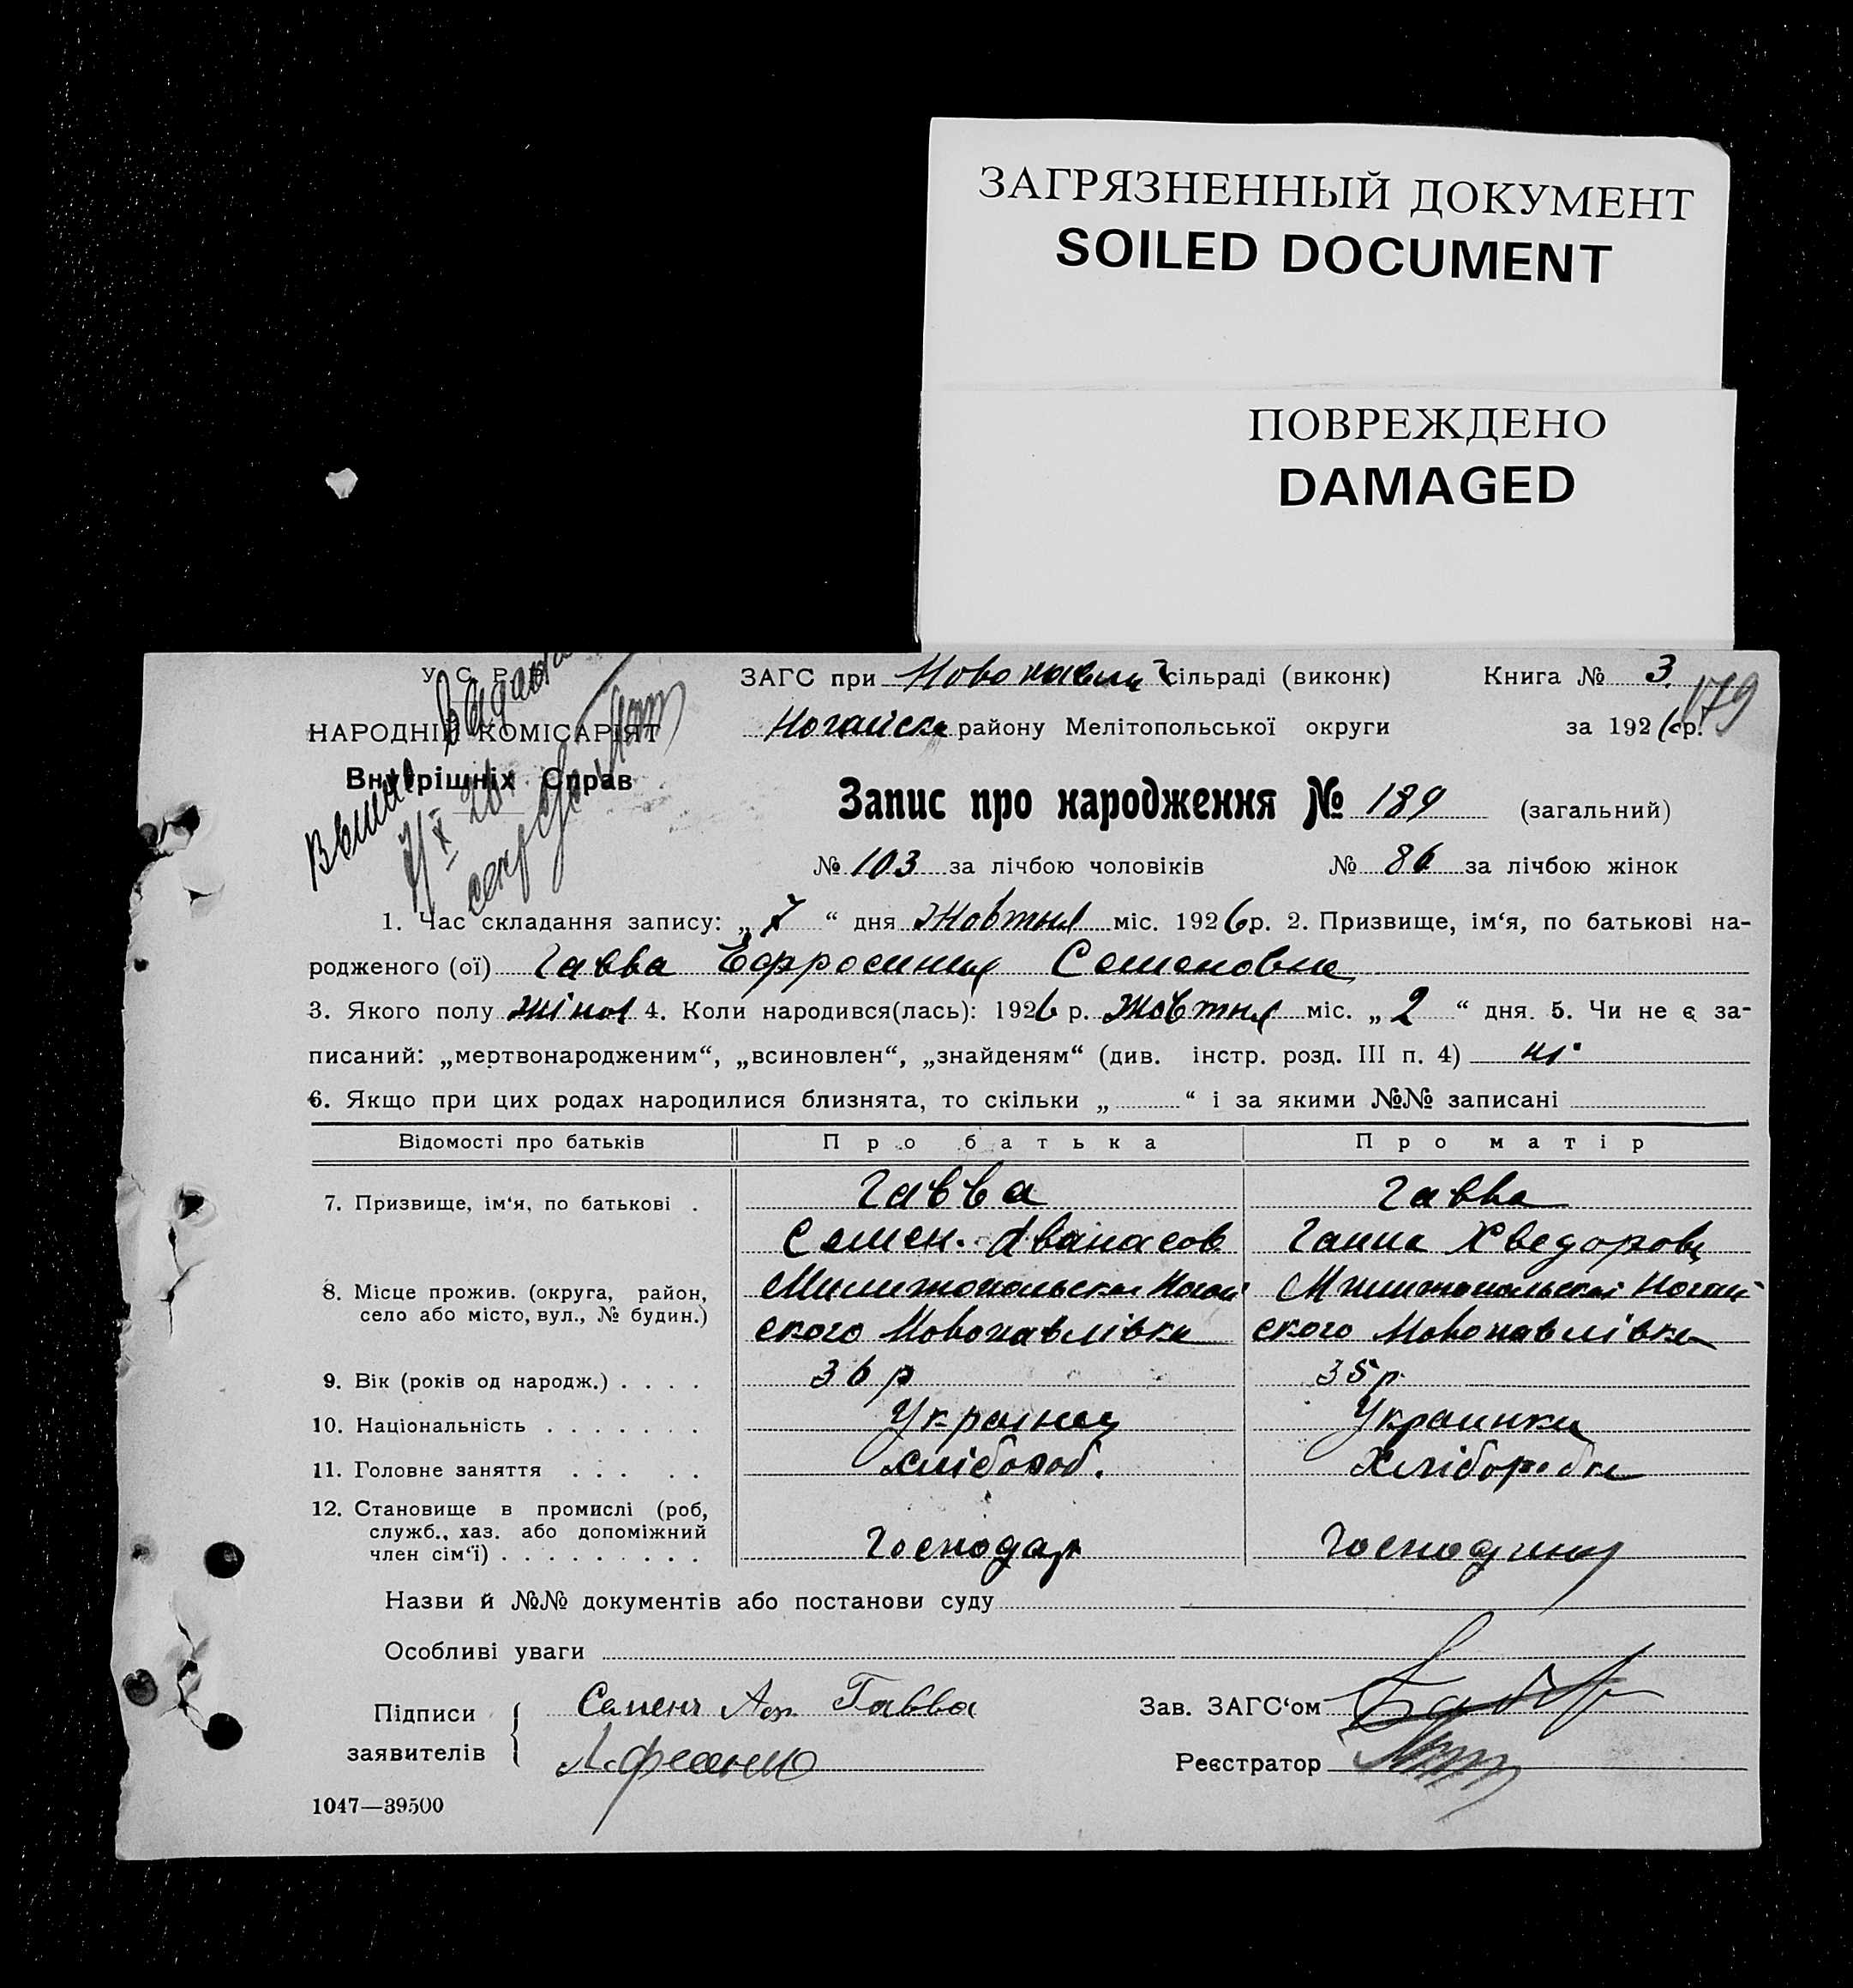 ЗАГРЯЗНЕННЫЙ ДОКУМЕНТ
SOILED DOCUMENT
ПОВРЕЖДЕНО
DAMAGED
У. С. Р. Р.
НАРОДНІЙ КОМІСАРІЯТ
Внутрішніх Справ
ЗАГС при Новопавлів сільраді (виконк)
Книга № 3.
179
Ногайськ району Мелітопольської округи
за 1926 р.
Запис про народження № 189 (загальний)
№ 103 за лічбою чоловіків № 86 за лічбою жінок
1. Час складання запису: „7“ дня Жовтня міс. 1926 р. 2. Призвище, ім‘я, по батькові на-
родженого (ої) Гавва Ефросиния Семеновна
3. Якого полу жіноч 4. Коли народився(лась): 1926 р. Жовтня міс. „2“ дня. 5. Чи не є за-
писаний: „мертвонародженим“, „всиновлен“, „знайденям“ (див. інстр. розд. III п. 4) ні
6. Якщо при цих родах народилися близнята, то скільки „ “ і за якими №№ записані
Відомості про батьків Про батька Про матір
7. Призвище, ім‘я, по батькові . Гавва Гавва
Семен. Аванасов Ганна Хведоров
8. Місце прожив. (округа, район, село або місто, вул., № будин.) Милитопольска Ногай Милитопольскоі Ногай
ского Новопавлівка ского Новопавлівка
9. Вік (років од народж.) . . . . 36 р 35 р.
10. Національність . . . . . . . Украінец Украинка
11. Головне заняття . . . . . Хлібороб. Хліборобка
12. Становище в промислі (роб, служб., хаз. або допоміжний член сім‘ї) . . . . . . . . . Господар Господиня
Назви й №№ документів або постанови суду
Особливі уваги
Підписи заявителів Семенъ Аф. Гавва
Зав. ЗАГС‘ом
Реєстратор
1047—39500